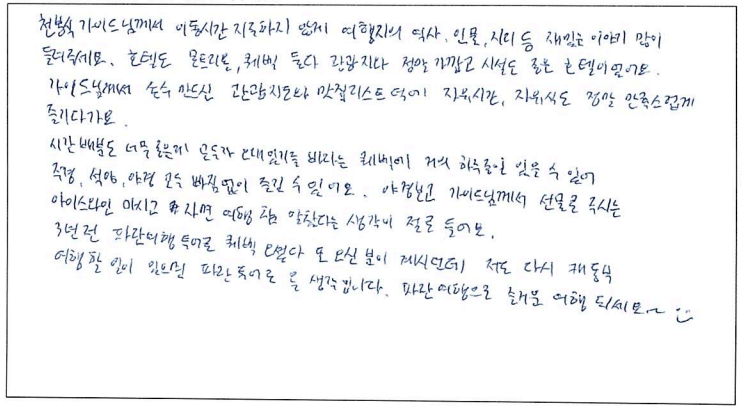 천봉식 가이드님께서 이동시간 지루하지 않게 여행지의 역사, 인물, 지리 등 재밌는 이야기 많이
들려주세요. 호텔도 몬트리올, 퀘벡 둘다 관광지다 정말 가깝고 시설도 좋은 호텔이었어요.
가이드님께서 손수 만드신 관광지도와 맛집리스트 덕에 자유시간, 자유식도 정말 만족스럽게
즐기다가요.
시간배분도 너무 좋은게 모두가 오래있기를 바라는 퀘벡에 거의 하루종일 있을 수 있어
죽경, 석양, 야경 모두 빠짐없이 즐길 수 있어요. 야경보고 가이드님께서 선물로 주시는
아이스와인 마시고 자면 여행 참 알찼다는 생각이 절로 들어요.
3년전 파란여행 투어로 퀘벡 오셨다 또 오신 분이 계시던데 저도 다시 캐동부
여행할 일이 있으면 파란투어로 올 생각입니다. 파란여행으로 즐거운 여행 되세요~